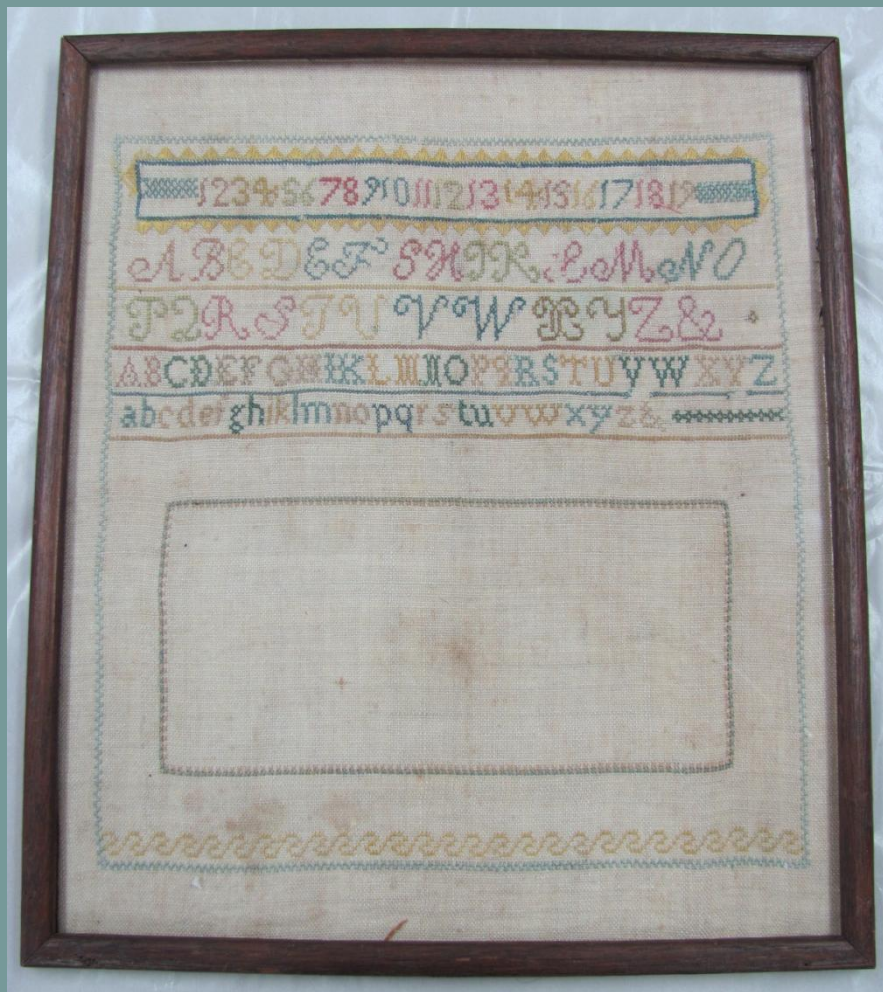 12345678910111213141516171819
ABCDEFGHIKLMNO
PQRSTUVWXYZ&
ABCDEFGHIKLMNOPQRSTUVWXYZ
abcdefghiklmnopqrstuvwxyz&